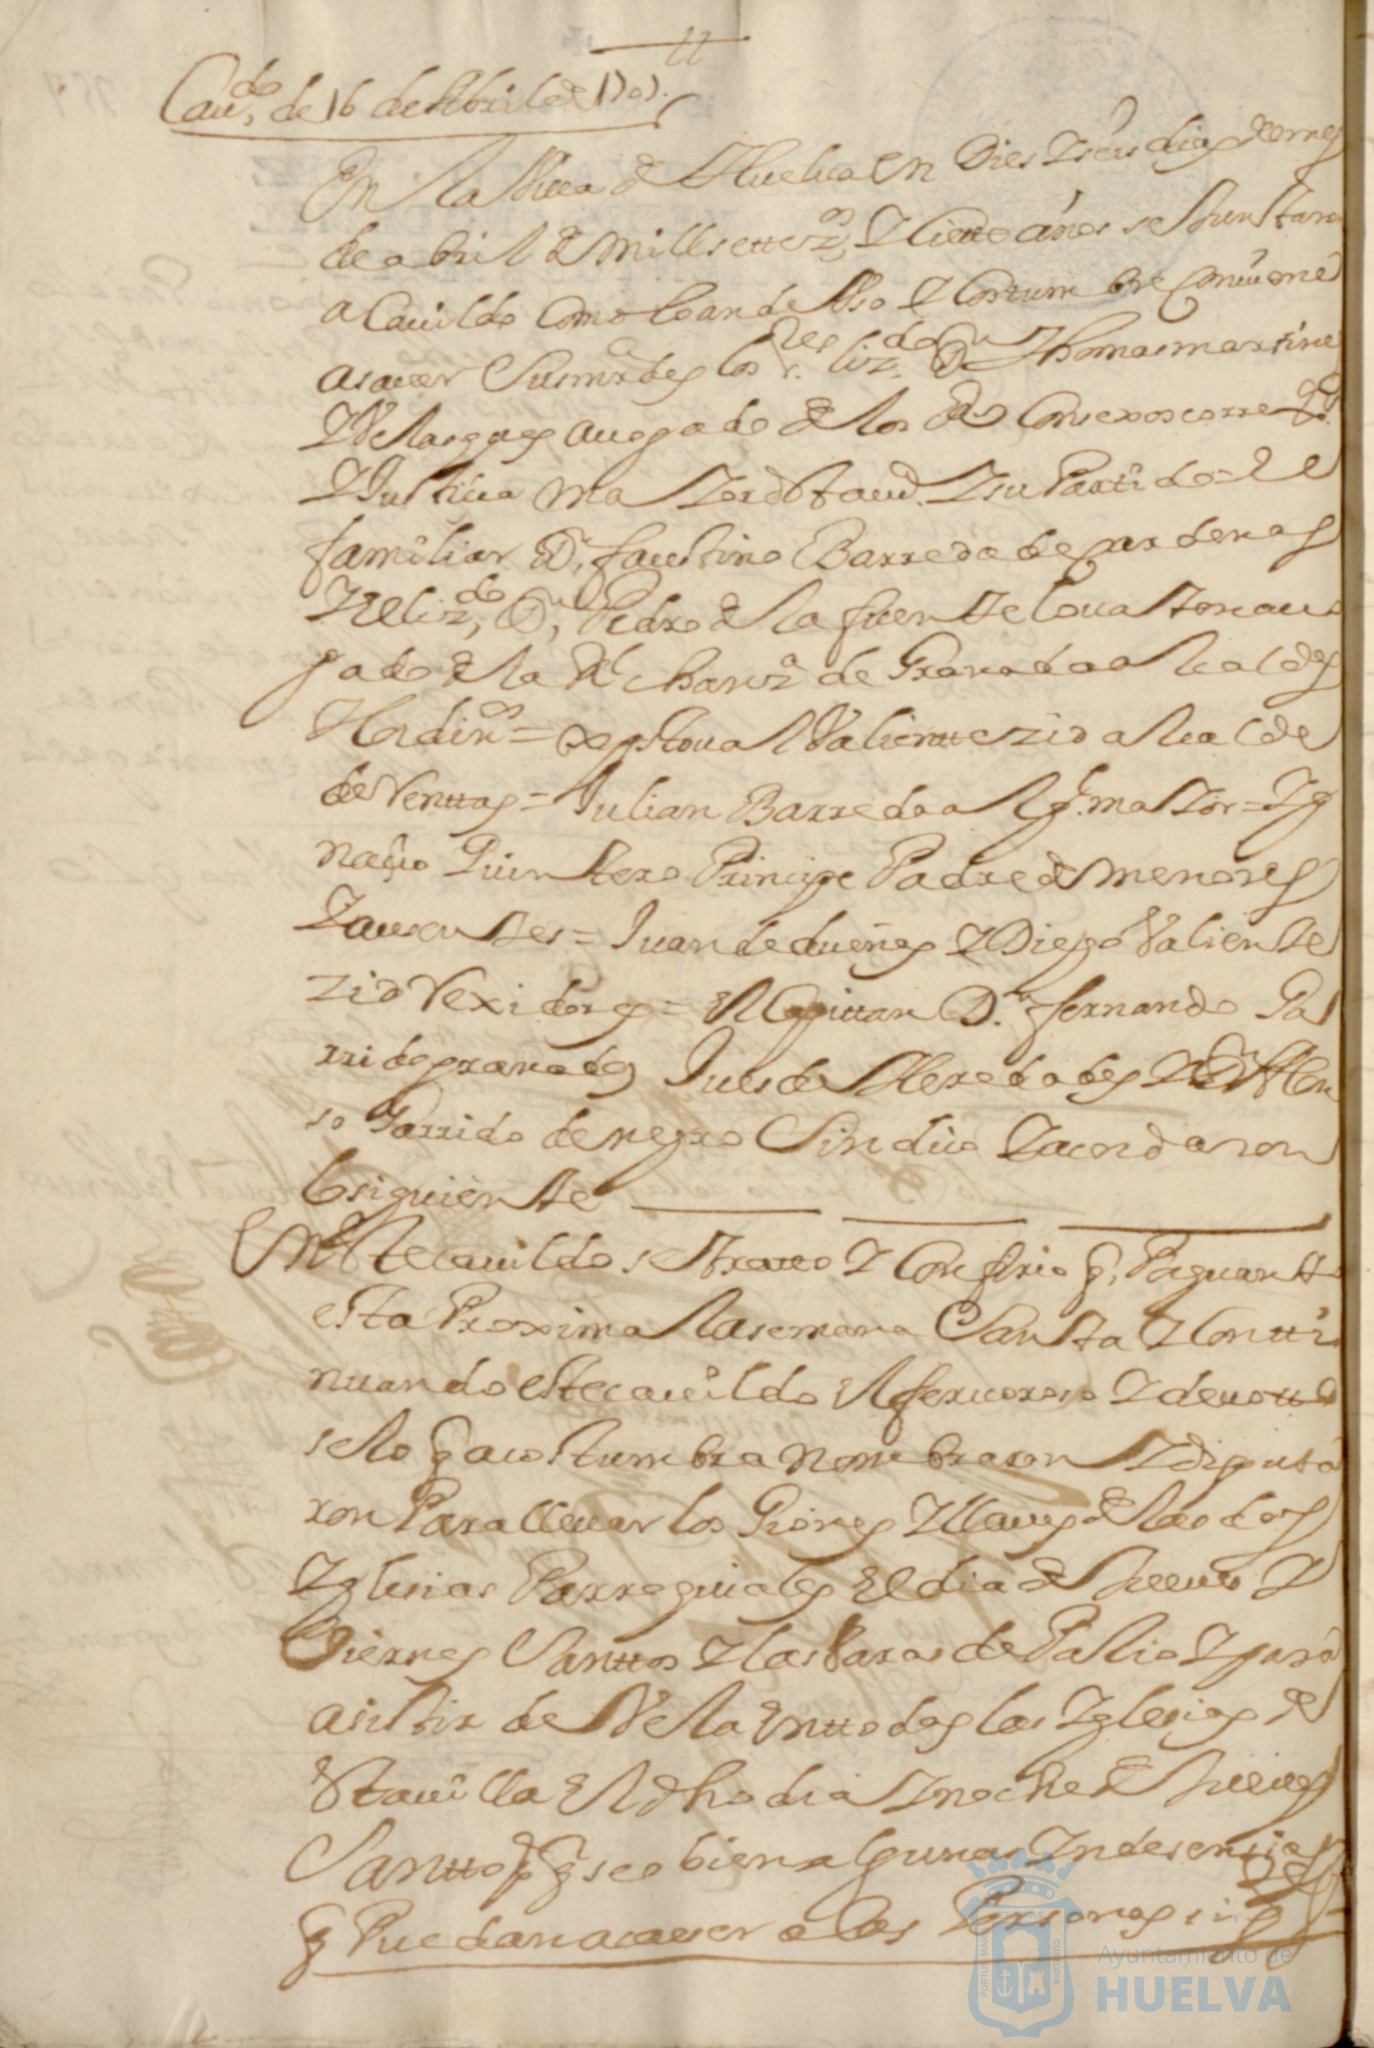 Cavdo, de 16 de Abril de 1707.
En la villa de Huelva en Dies y seis dias de mes
de abril de mill settezos, y siette años se Juntaron
a Cavildo como lo an de Uso y Costumbre Conviene
asaver Sus mrds los res lizdo Dn Thomas martine
y Velasques avogado de los Rs Consexos corregor
y Justicia mayor desta va. y su Partido = el
familiar Dn, faustino Barreda de Cardenas
y el lizdo, Dn, Pedro de la fuente lova y toro avo
gado de la Rl chanza de Granada alcaldes
Hordinos = xptoval Valientte zid alcalde
de Venttas = Julian Barreda alg. mayor = Yg
naçio Quintero Principe Padre de menores
y ausentes = Juan de dueñas y Diego Valiente
zid Rexidores = el Capittan Dn fernando Ga
rrido granado Jues de Heredades y Dn Alon
so Garrido de negro Sindico y acordaron
lo siguiente
En este cavildo se tratto y Confirio q, Por quantto
esta Proxima la semana Santa y Contti
nuando este cavildo el fervoroso y devotto
selo q acostumbra nombraron y diputa
ron Para llevar los Giones y llaves de las dos
Yglesias Parroquiales El dia de Jueves y
Viernes Santtos y las Varas de Palio y para
asistir de Vela en ttodas las Yglesias de
esta villa el dho dia y noche de Jueves
Santto pr q se obien algunas Yndesensias
q Puedan acaeser a las Personas sigtes
Ayuntamiento de
HUELVA